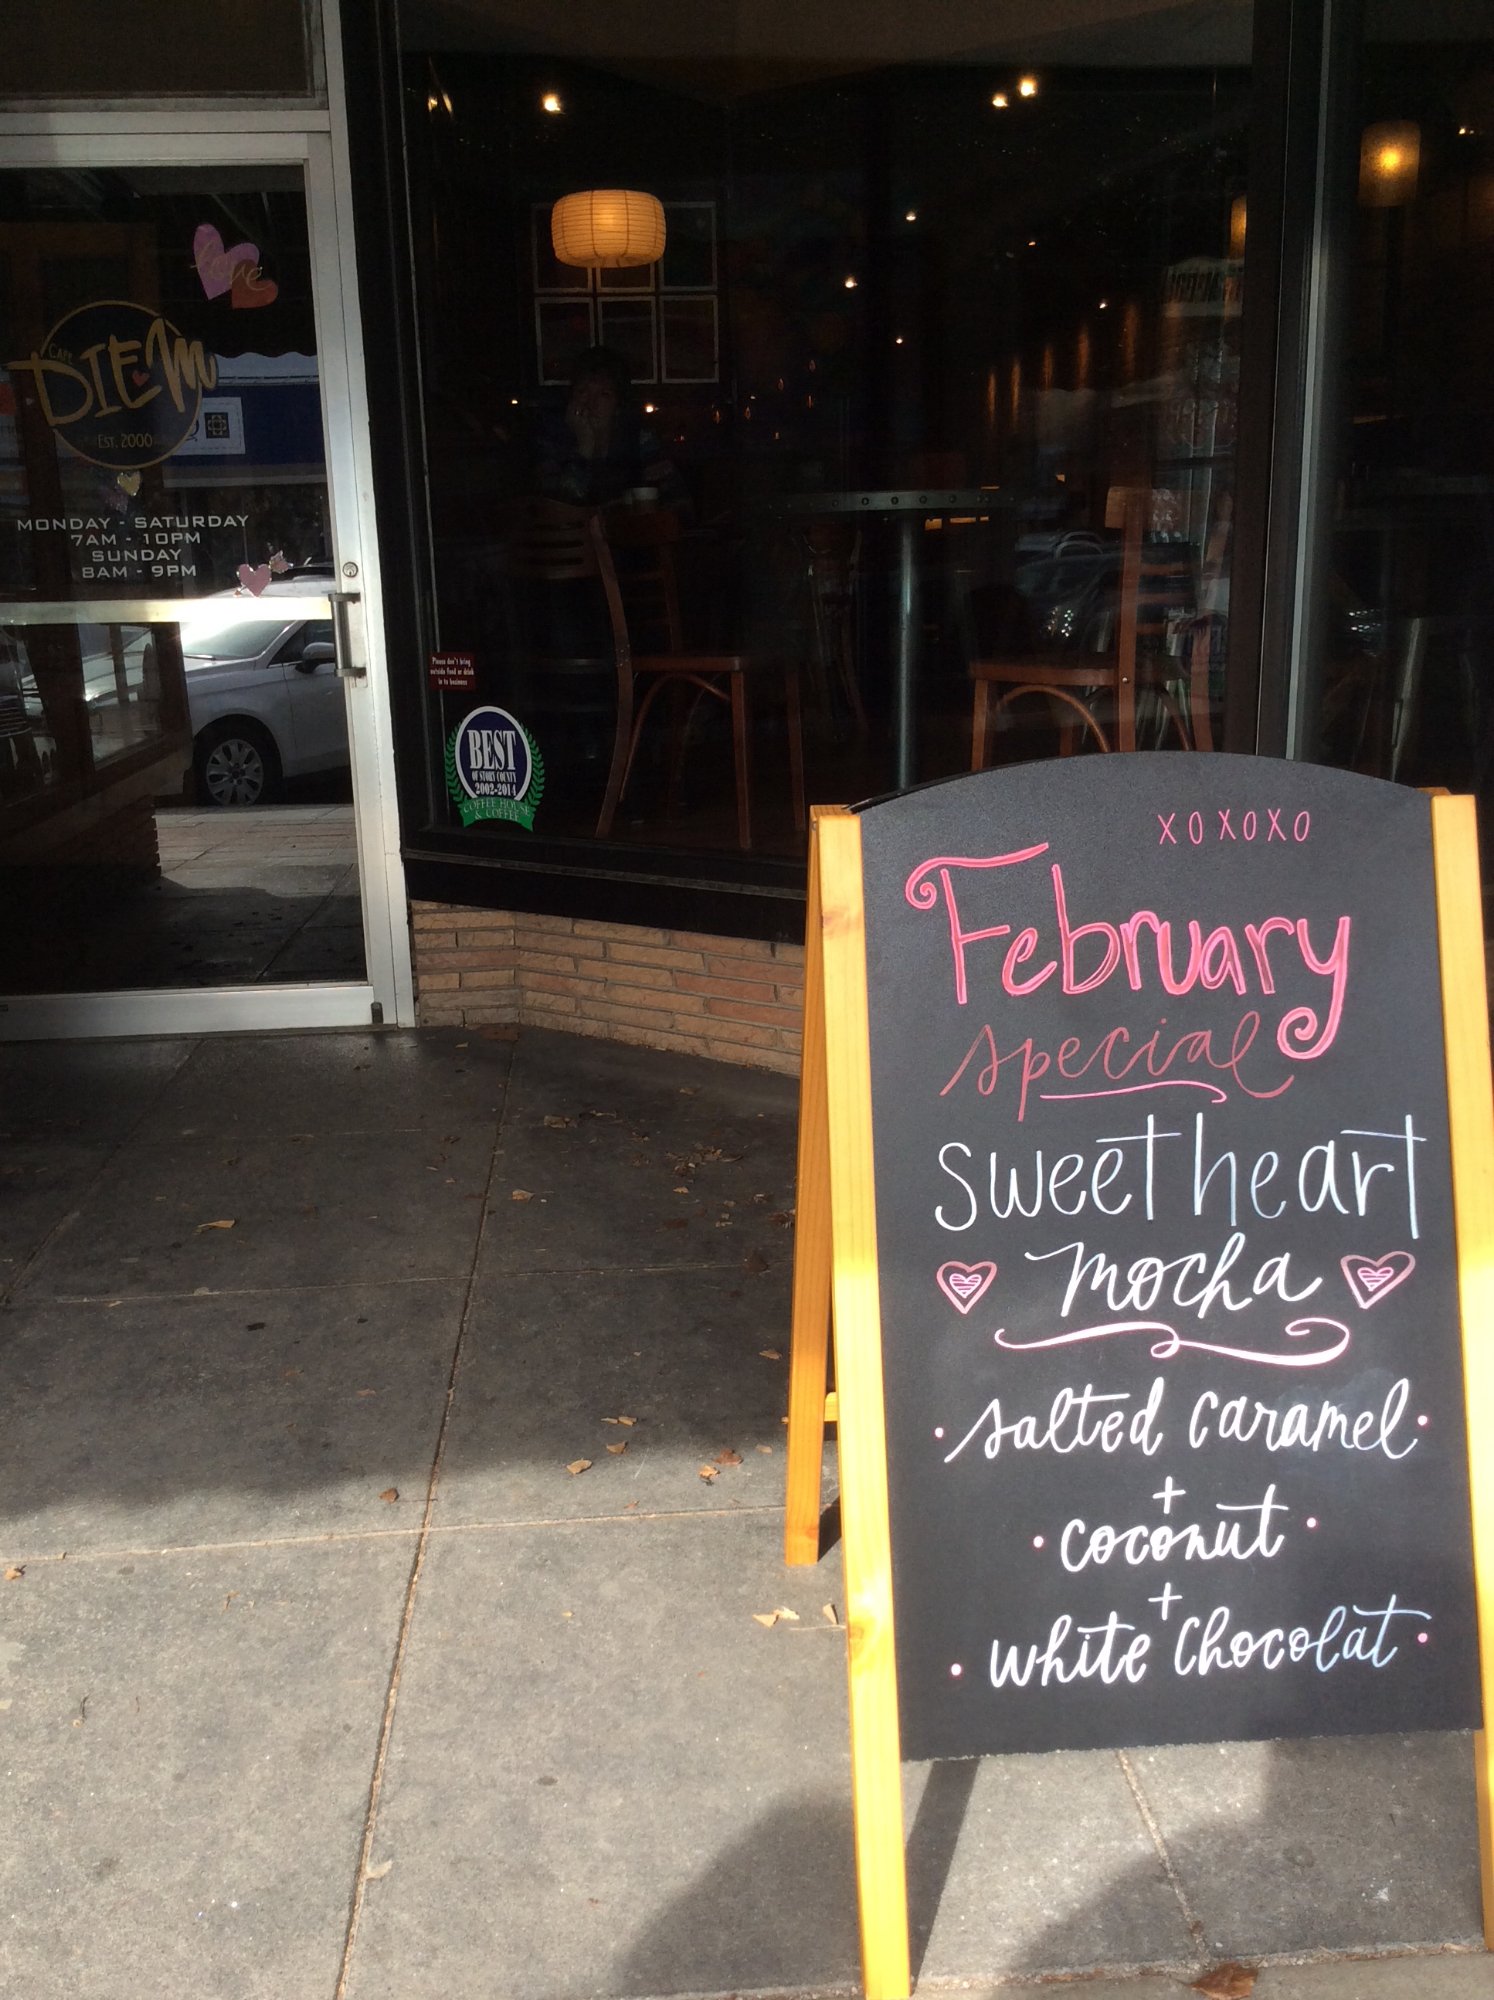 love
CAFE
DIEM
EST. 2000
MONDAY - SATURDAY
7AM - 10PM
SUNDAY
8AM - 9PM
Please don't bring
outside food or drink
in to business
BEST
OF STORY COUNTY
2002-2014
COFFEE HOUSE
& COFFEE
XOXOXO
February
special
sweetheart
mocha
salted caramel
+
coconut
+
white chocolat